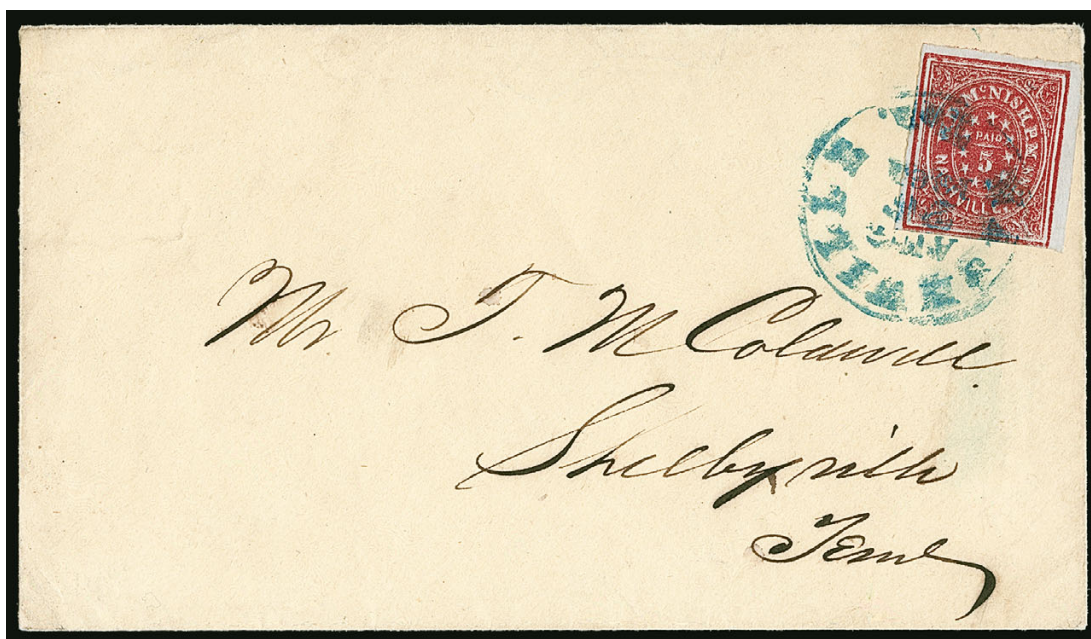 McNISH P.M.
PAID
5
NASHVILLE
AUG
Mr T. M Coldwell
Shelbyville
Tenn